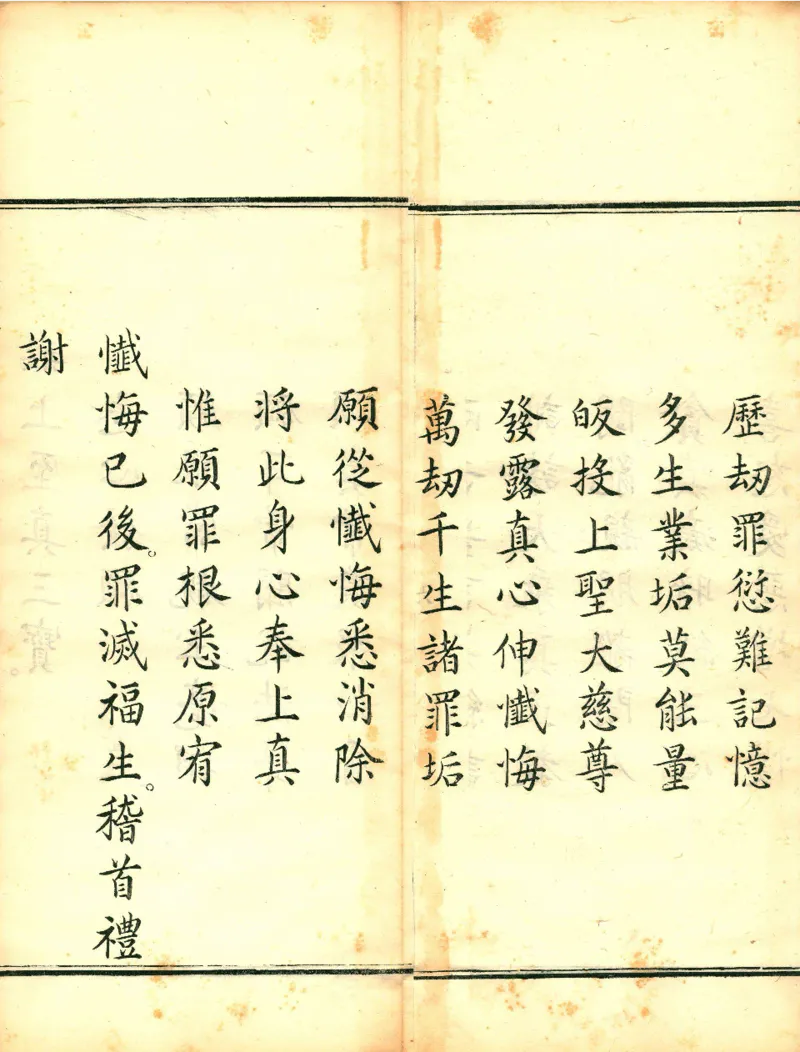 歷刧罪愆難記憶
多生業垢莫能量
皈投上聖大慈尊
發露真心伸懺悔
萬刧千生諸罪垢
願從懺悔悉消除
將此身心奉上真
惟願罪根悉原宥
懺悔已後。罪滅福生。稽首禮
謝